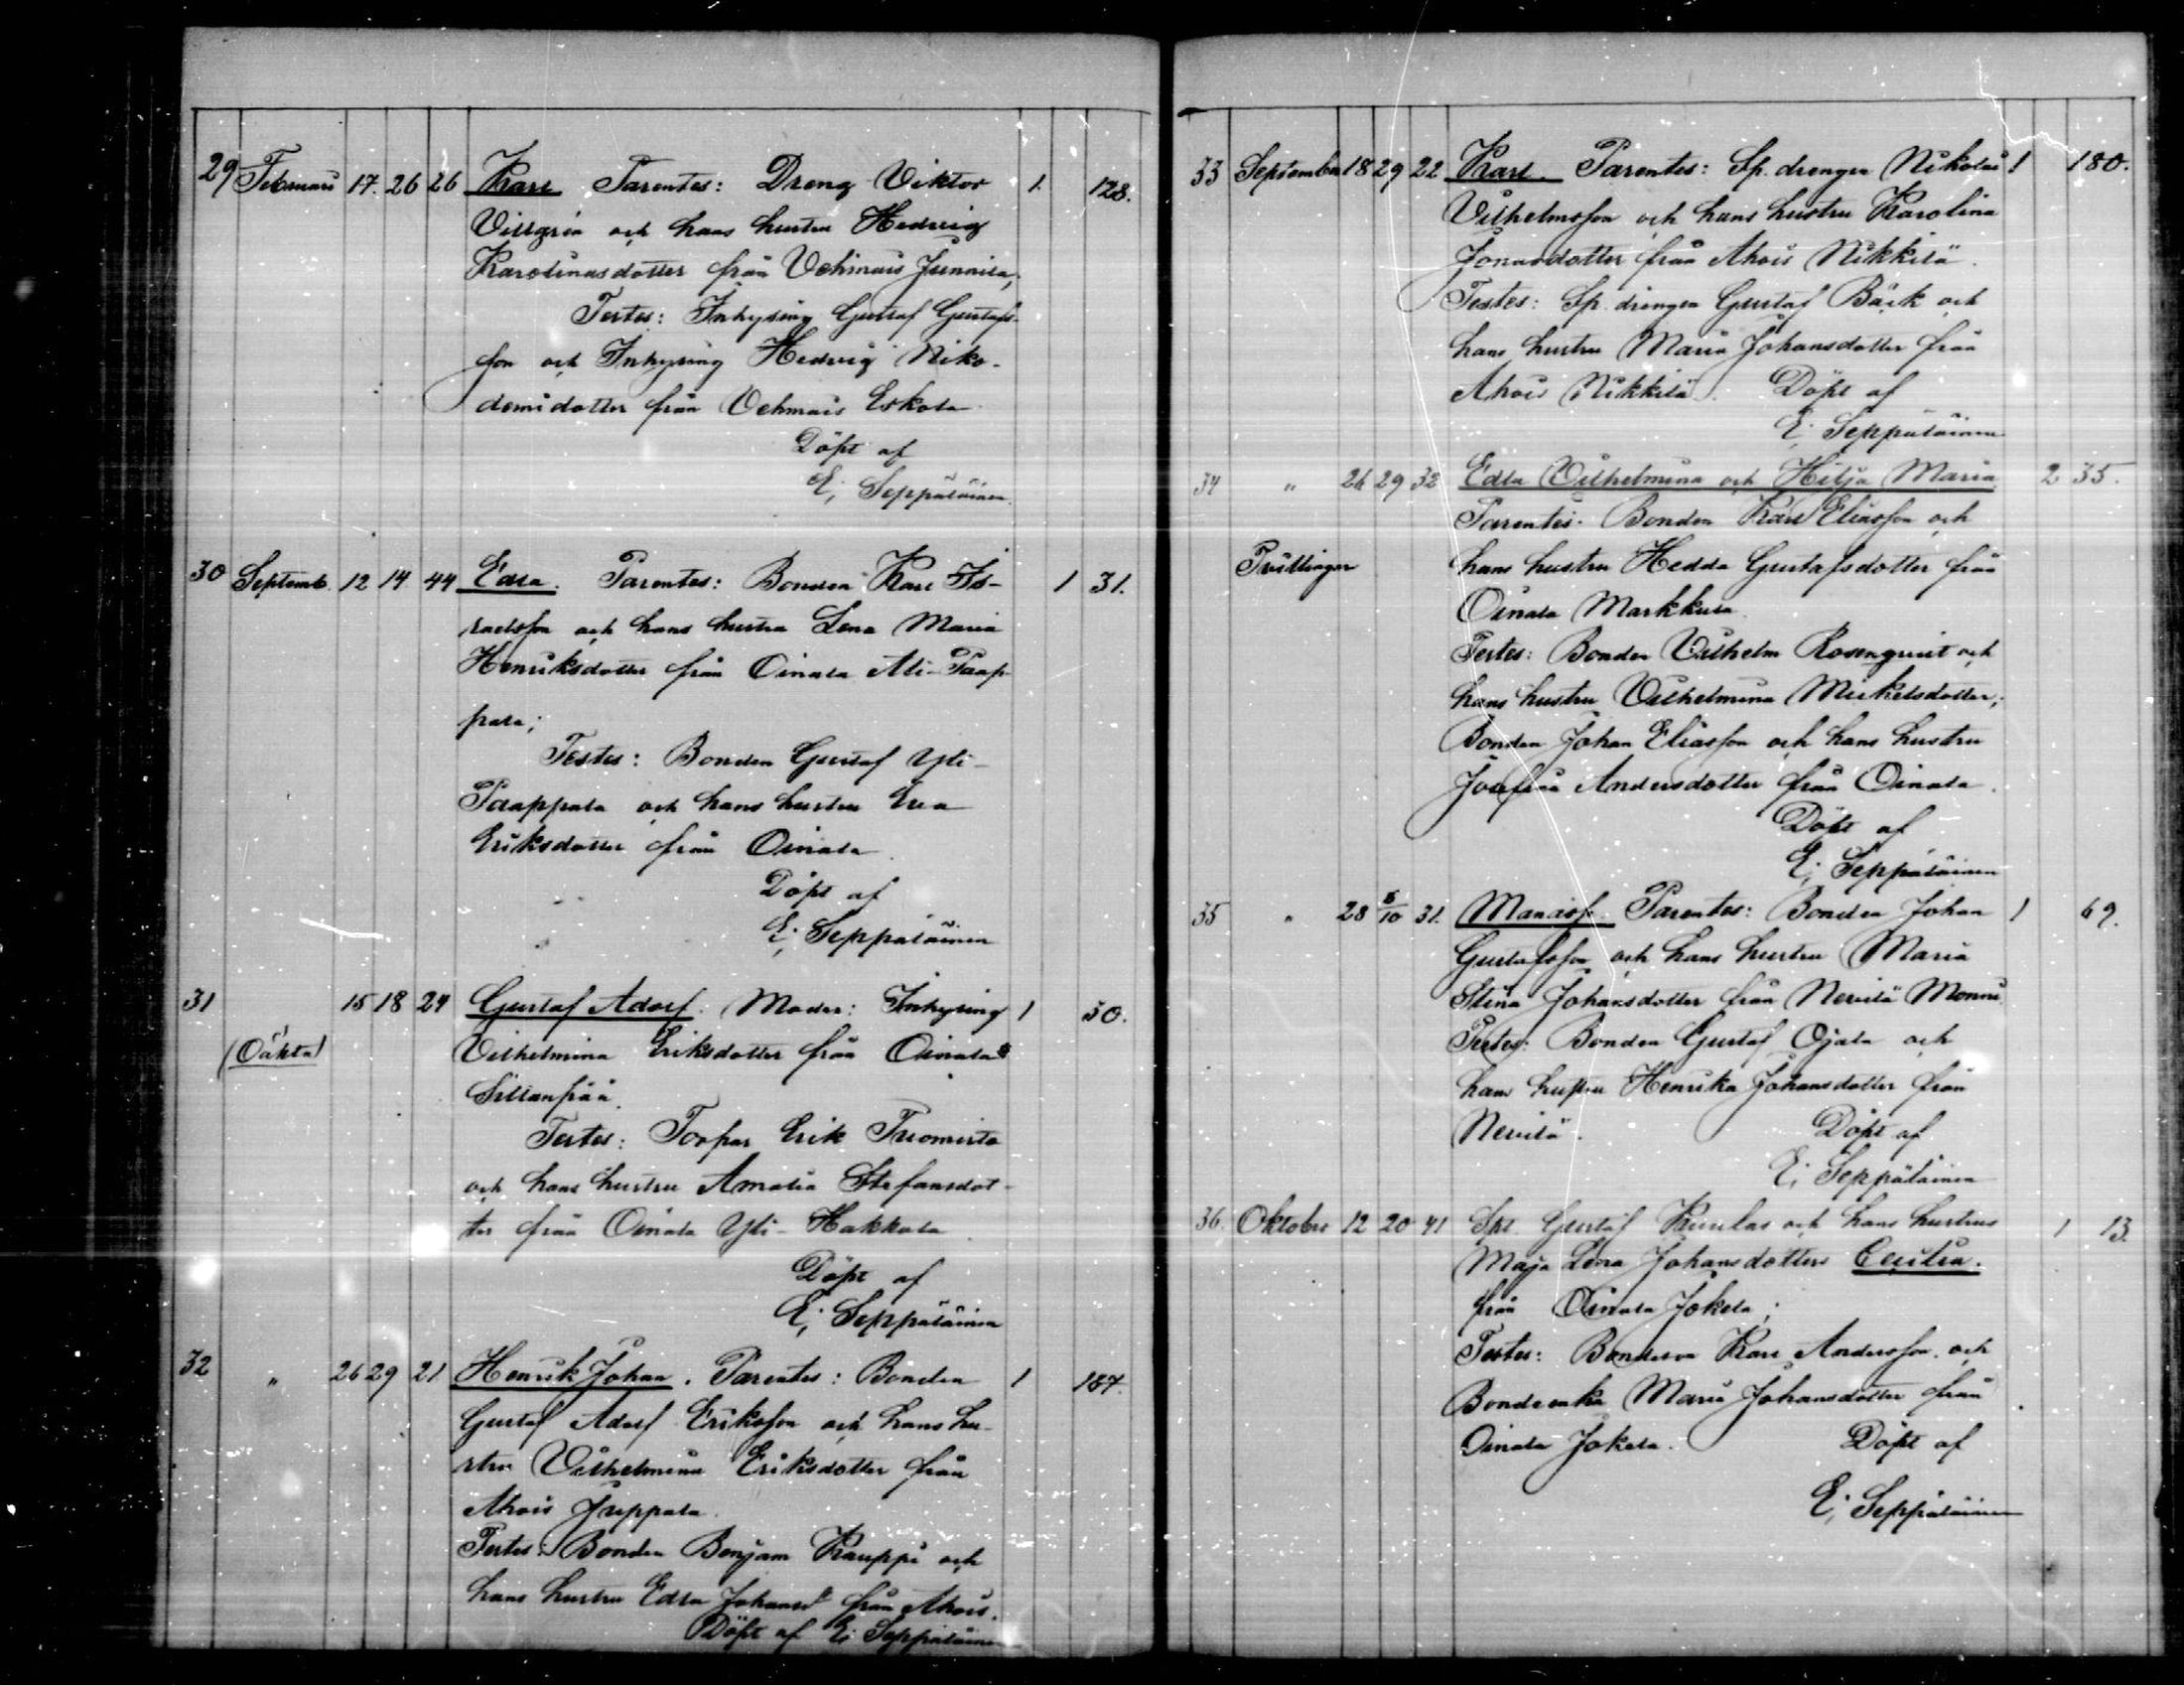 29 Februari 17. 26 26 Karl Parentes: Dreng Viktor 1. 128.
Villgrén och hans hustru Hedvig
Karolinasdotter från Vehmais Junnila;
Testes: Inhysing Gustaf Gustafs-
son och Inhysing Hedvig Niko-
demidotter från Vehmais Eskola
Döpt af
E; Seppäläinen.
30 Septemb. 12 14 44 Edla. Parentes: Bonden Karl Is- 1 31.
raelsson och hans hustru Lena Maria
Henriksdotter från Oinala Ali-Paap-
pala;
Testes: Bonden Gustaf Yli-
Paappala och hans hustru Eva
Eriksdotter från Oinala
Döpt af
E; Seppäläinen
31 15 18 24 Gustaf Adolf. Moder: Inhysing 1 50.
(Oäkta) Vilhelmina Eriksdotter från Oinala
Sillanpää.
Testes: Torpar Erik Tuomisto
och hans hustru Amalia Stefansdot-
ter från Oinala Yli-Hakkala
Döpt af
E; Seppäläinen
32 " 26 29 21 Henrik Johan. Parentes: Bonden 1 187.
Gustaf Adolf Eriksson och hans hu-
stru Vilhelmina Eriksdotter från
Ahois Juppala.
Testes: Bonden Benjam Kauppi och
hans hustru Edla Johansd från Ahois.
Döpt af E; Seppäläinen
33 September 18 29 22 Karl. Parentes: Sp. drengen Nikolai 1 180.
Vilhelmsson och hans hustru Karolina
Jonasdotter från Ahois Nikkilä.
Testes: Sp. drengen Gustaf Bäck och
hans hustru Maria Johansdotter från
Ahois Nikkilä. Döpt af
E; Seppäläinen
34 " 26 29 32 Edla Vilhelmina och Hilja Maria 2 35.
Parentes. Bonden Karl Eliasson och
Tvillingar hans hustru Hedda Gustafsdotter från
Oinala Markkula
Testes: Bonden Vilhelm Rosenqvist och
hans hustru Vilhelmina Mickelsdotter;
Bonden Johan Eliasson och hans hustru
Josefina Andersdotter från Oinala.
Döpt af
E; Seppäläinen
35 " 28 6/10 31. Manasse. Parentes: Bonden Johan 1 69.
Gustafsson och hans hustru Maria
Stina Johansdotter från Nervilä Monni
Testes: Bonden Gustaf Ojala och
hans hustru Henrika Johansdotter från
Nervilä. Döpt af
E; Seppäläinen
36. Oktober 12 20 41 Spt. Gustaf Kuulas och hans hustrus 1 13.
Maja Lena Johansdotters Cecilia.
från Oinala Jokela;
Testes: Bondeson Karl Andersson och
Bondeenka Maria Johansdotter från
Oinala Jokela. Döpt af
E; Seppäläinen